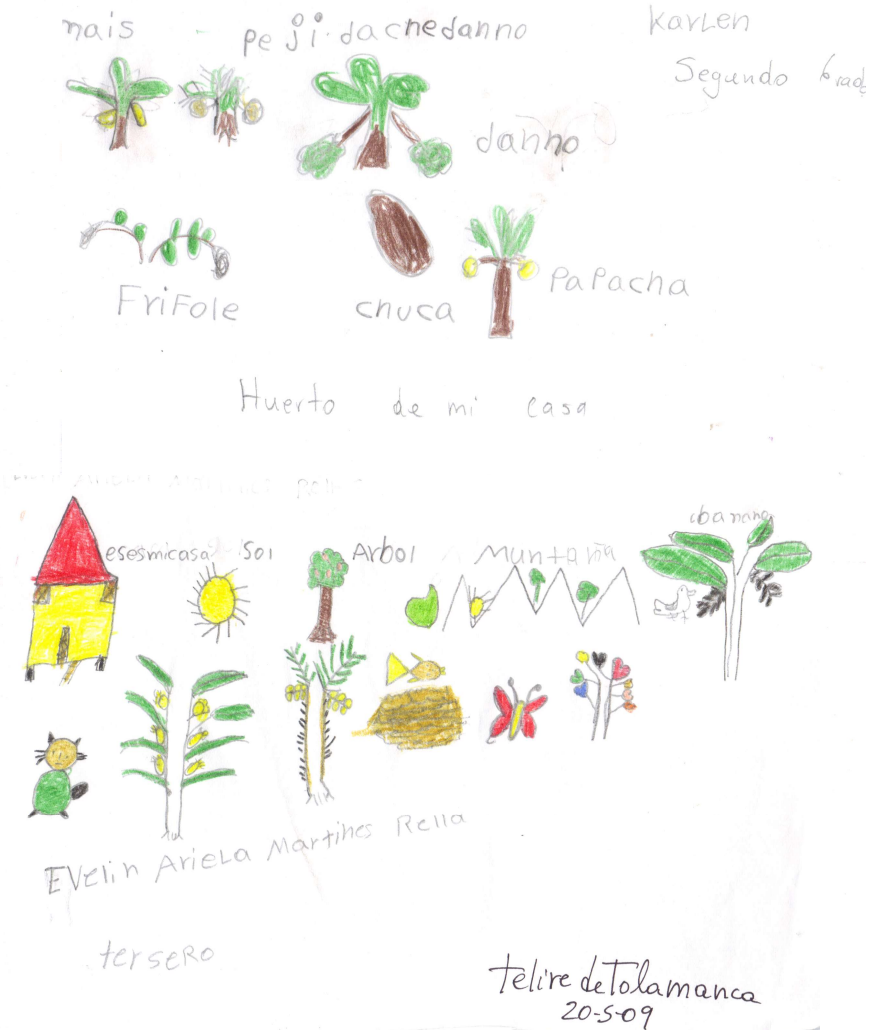 mais
peji.dacnedanno
Karlen
Segundo Grade
danno
Frifole
chuca
Papacha
Huerto de mi casa
esesmicasa
Sol
Arbol
Muntaña
banano
Evelin Ariela Martines Rella
terseRo
telire deTalamanca
20-5-09